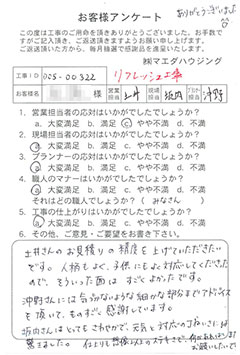 お客様アンケート
ありがとうございました
この度は工事のご用命を頂きありがとうございました。お手数で
すがご記入頂き、ご返送頂きますようお願い申し上げます。
ご返送頂いた方から、毎月抽選で粗品進を差し上げます。
㈱マエダハウジング
工事ID 005-00322 リフレッシュ工事
お客様名 様 営業担当 土井 現場担当 坂内 プランナー担当 沖野
1. 営業担当者の応対はいかがでしたでしょうか？
a. 大変満足 b. 満足 c. やや不満 d. 不満
2. 現場担当者の応対はいかがでしたでしょうか？
a. 大変満足 b. 満足 c. やや不満 d. 不満
3. プランナーの応対はいかがでしたでしょうか？
a. 大変満足 b. 満足 c. やや不満 d. 不満
4. 職人のマナーはいかがでしたでしょうか？
a. 大変満足 b. 満足 c. やや不満 d. 不満
それはどの職人でしょうか？（ みなさん ）
5. 工事の仕上がりはいかがでしたでしょうか？
a. 大変満足 b. 満足 c. やや不満 d. 不満
6. その他、ご意見・ご要望をお書き下さい。
土井さんのお見積りの精度を上げていただきたい
です。人柄もよく、子供にもよく対応してくださった
ので、そういった面は すごくよかったです。
沖野さんには 気づかないような細かな部分までアドバイス
を頂いて、ものすごく感謝しています。
坂内さんはとってもさわやかで、元気と対応の丁ねいさには
仕上りも想像以上のステキさで、
お願いしたいです